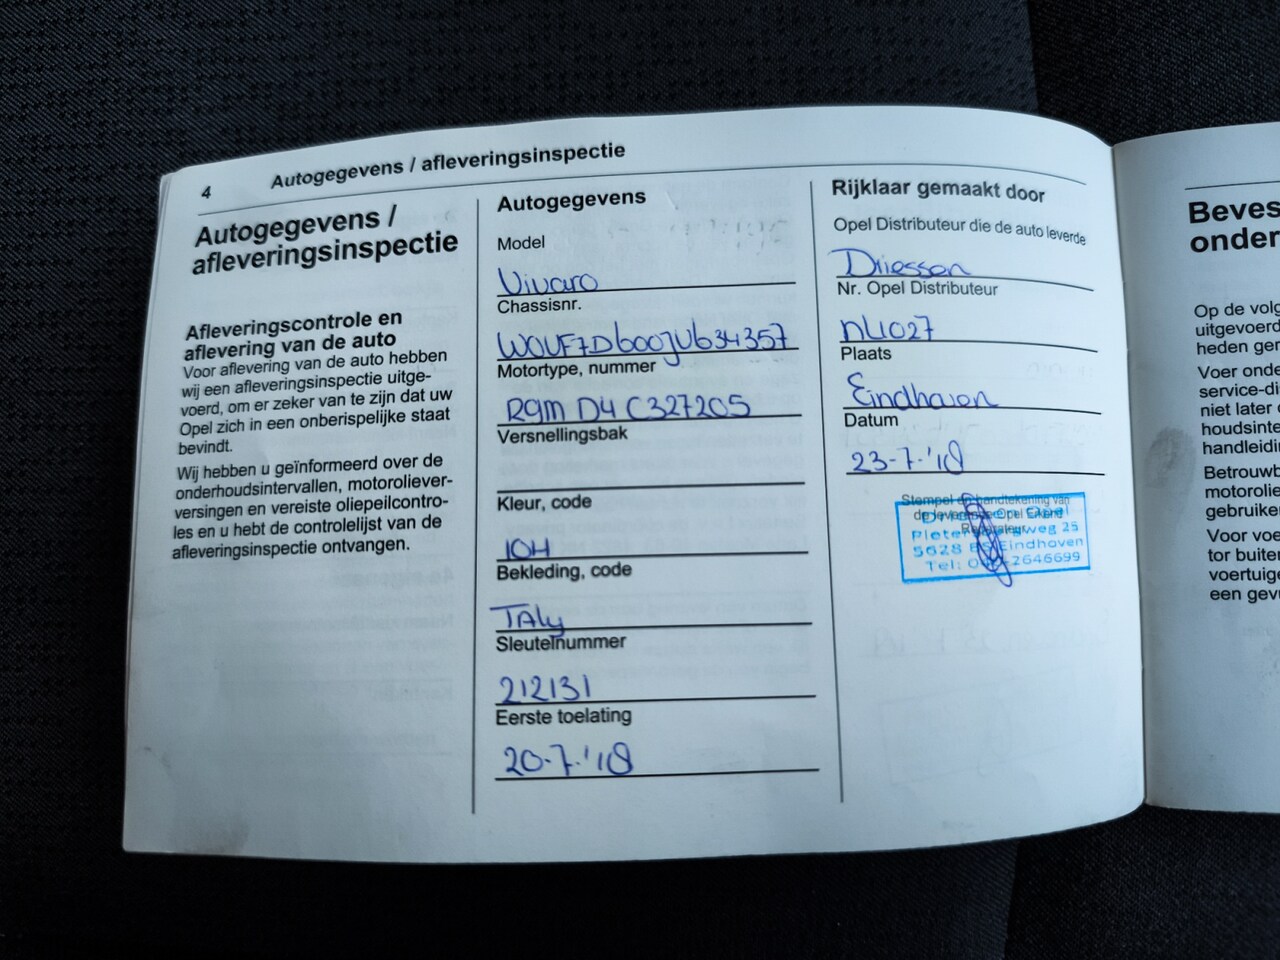 4
Autogegevens / afleveringsinspectie
Autogegevens /
afleveringsinspectie
Afleveringscontrole en
aflevering van de auto
Voor aflevering van de auto hebben
wij een afleveringsinspectie uitge-
voerd, om er zeker van te zijn dat uw
Opel zich in een onberispelijke staat
bevindt.
Wij hebben u geïnformeerd over de
onderhoudsintervallen, motoroliever-
versingen en vereiste oliepeilcontro-
les en u hebt de controlelijst van de
afleveringsinspectie ontvangen.
Autogegevens
Model
Vivaro
Chassisnr.
W0VF7D600JV634357
Motortype, nummer
R9M D4 C327205
Versnellingsbak
Kleur, code
10H
Bekleding, code
TALY
Sleutelnummer
212131
Eerste toelating
20-7-'18
Rijklaar gemaakt door
Opel Distributeur die de auto leverde
Driessen
Nr. Opel Distributeur
NL1027
Plaats
Eindhoven
Datum
23-7-'18
Stempel en handtekening van
Opel
weg 25
5628 Eindhoven
Tel: 2646699
Beves
onder
Op de volg
uitgevoerd
heden ger
Voer onde
service-di
niet later
houdsinte
handleidin
Betrouwb
motorolie
gebruiken
Voor voe
tor buiten
voertuige
een gevu